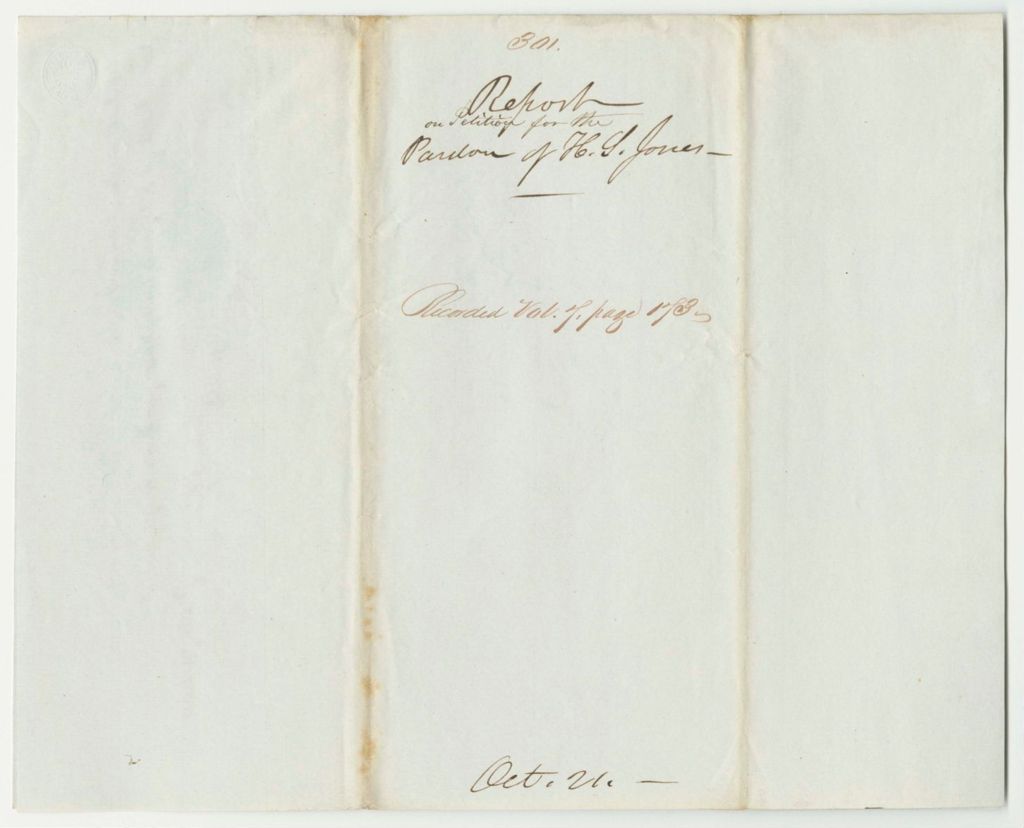 301.
Report
on Petition for the
Pardon of H. S. Jones—
Recorded Vol. 7, page 173
Oct. 21. —